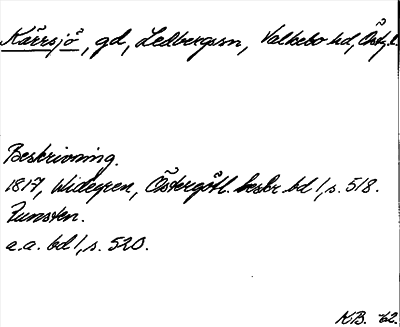 Kärrsjö, gd, Ledbergssn, Valkebo hd, Östg.l.
Beskrivning.
1817, Widegren, Östergötl. beskr. bd 1, s. 518.
Runsten.
a.a. bd 1, s. 520.
KB. 62.